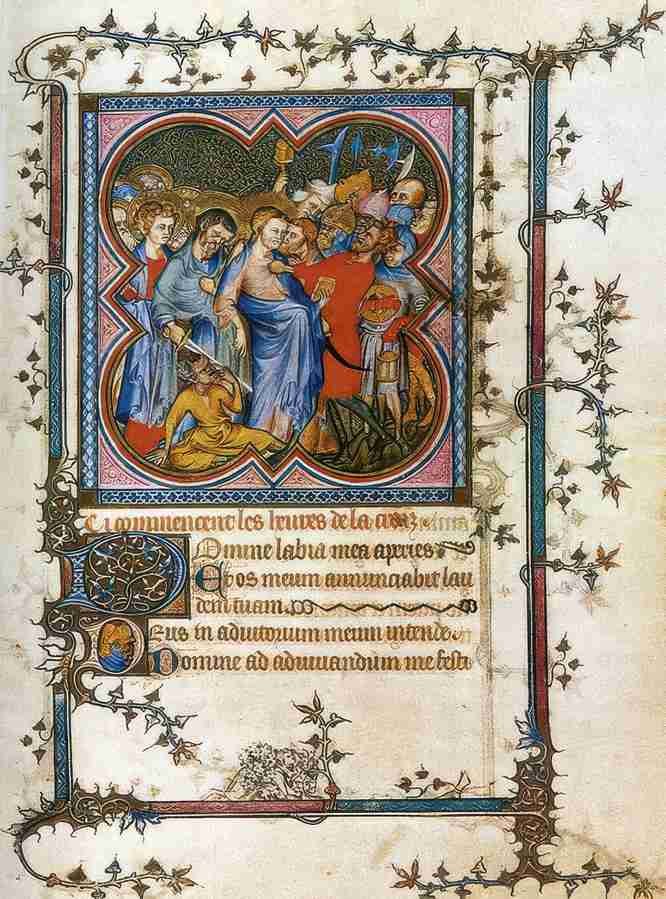 Ci commencent les heures de la croiz
Domine labia mea aperies
Et os meum annunciabit lau
dem tuam.
Deus in adiutorium meum intende
Domine ad adiuuandum me festi